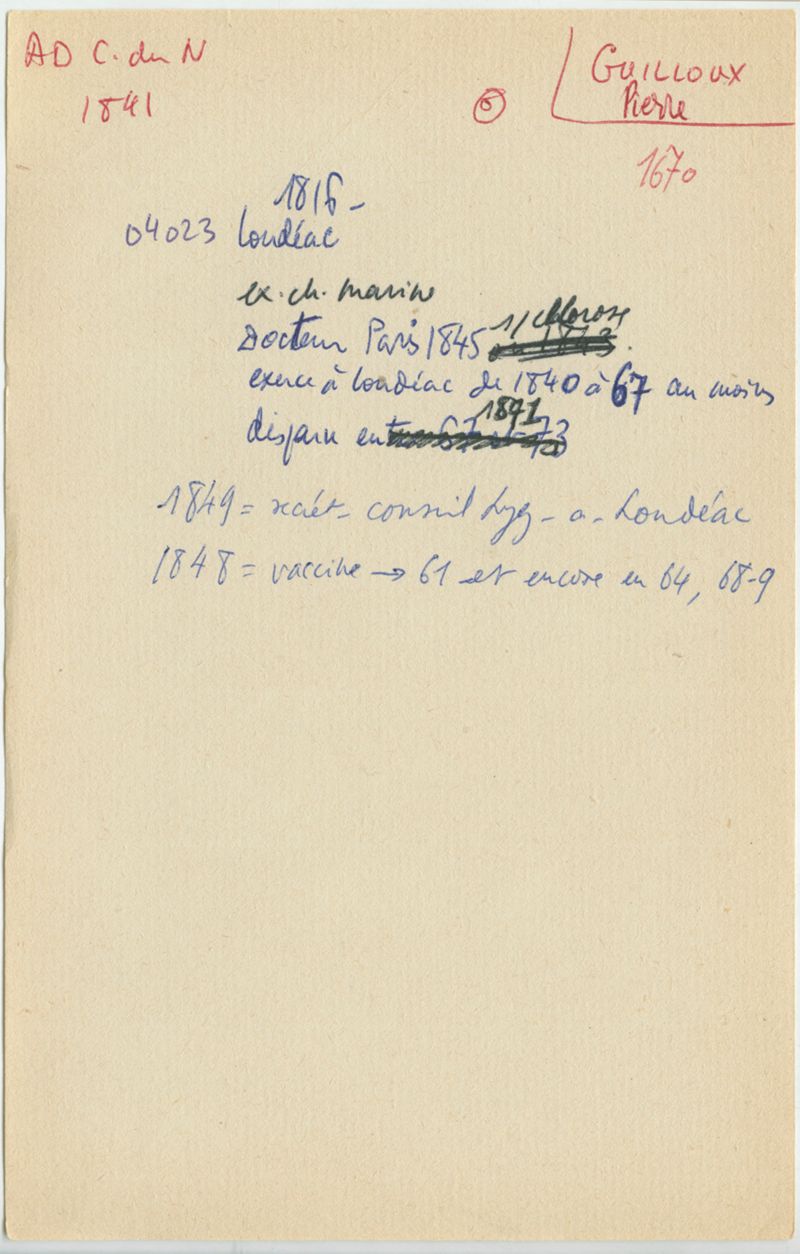 AD C. du N
1841
Guilloux
Pierre
1670
1816 -
04023 Loudéac
ex. ch. marine
Docteur Paris 1845 s/ chlorose
exerce à Loudéac de 1840 à 67 au moins
disparu en 1871
1849 = secrét - conseil hyg - a - Loudéac
1848 = vaccine → 61 et encore en 64, 68-9